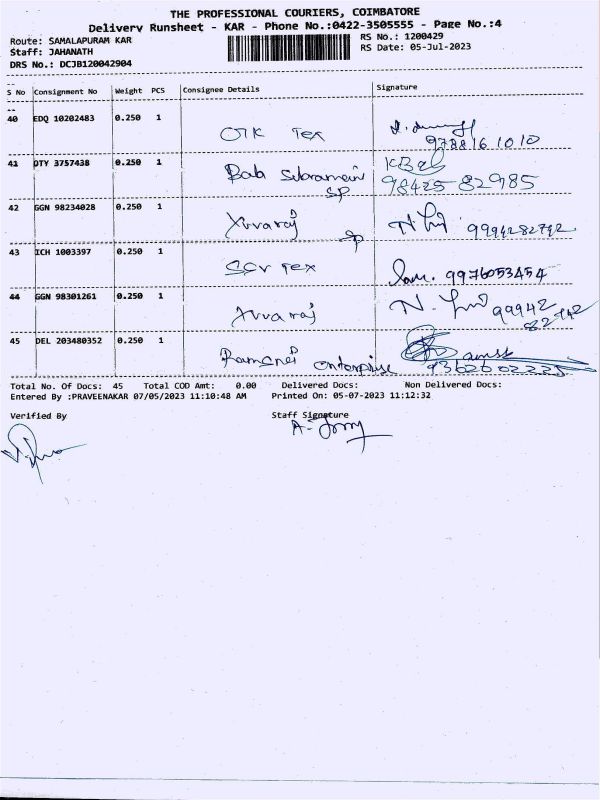 THE PROFESSIONAL COURIERS, COIMBATORE
Delivery Runsheet - KAR - Phone No.:0422-3505555 - Page No.:4
Route: SAMALAPURAM KAR RS No.: 1200429
Staff: JAHANATH RS Date: 05-Jul-2023
DRS No.: DCJB120042904
S No Consignment No Weight PCS Consignee Details Signature
40 EDQ 10202483 0.250 1
OTK Tex
9788161010
41 DTY 3757438 0.250 1
Bala Subramani 98425-82985
SP
42 GGN 98234028 0.250 1
Yuvaraj 9994282742
43 ICH 1003397 0.250 1
SCV Tex 9976053454
44 GGN 98301261 0.250 1
Yuvaraj 99942
82742
45 DEL 203480352 0.250 1
enterprise
Total No. Of Docs: 45 Total COD Amt: 0.00 Delivered Docs: Non Delivered Docs:
Entered By :PRAVEENAKAR 07/05/2023 11:10:48 AM Printed On: 05-07-2023 11:12:32
Verified By Staff Signature